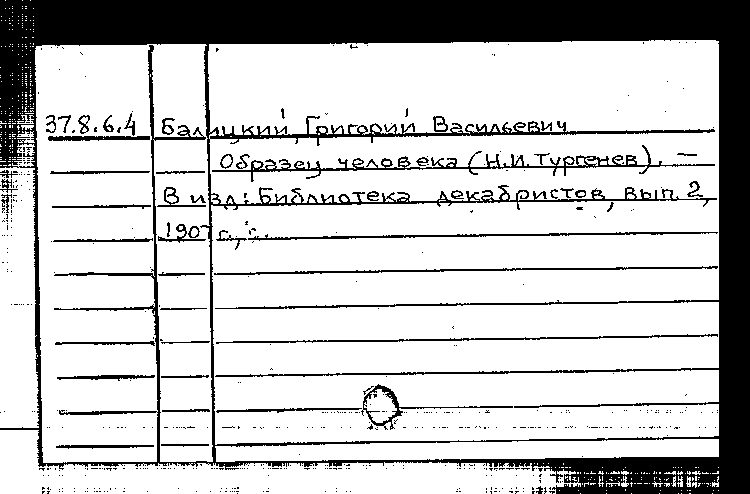 37.8.6.4 Балицкий, Григорий Васильевич
Образец человека (Н.И. Тургенев). —
В изд: Библиотека декабристов, вып. 2,
1907 г., с.